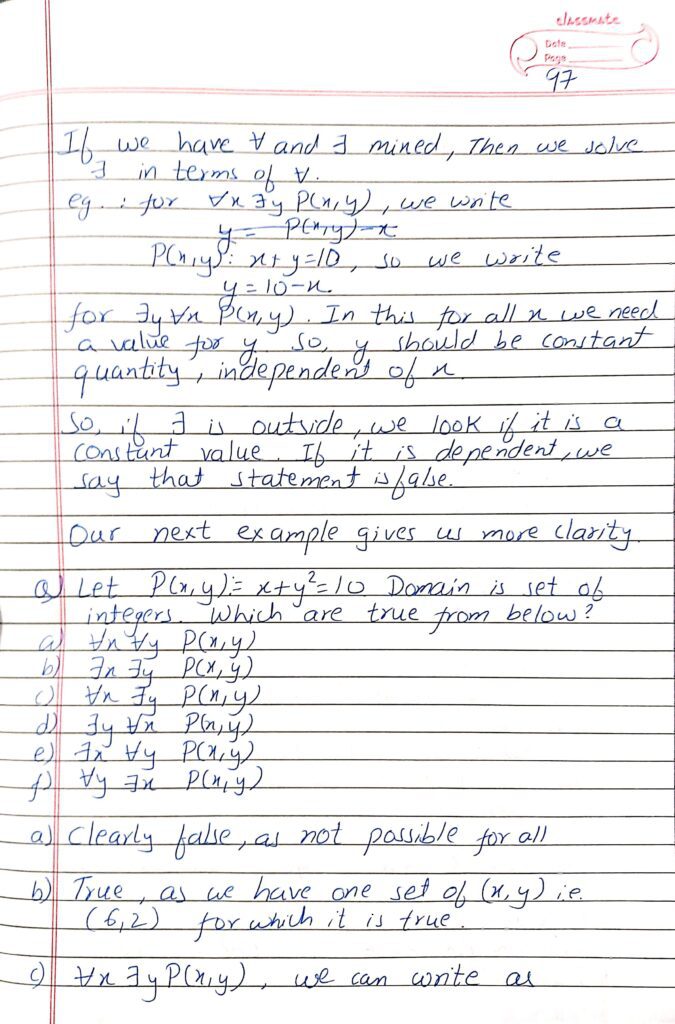 classmate
Date
Page
97
If we have ∀ and ∃ mined, Then we solve
∃ in terms of ∀.
eg. : for ∀x ∃y P(x,y), we write
y = P(x,y)-x
P(x,y): x+y=10, so we write
y = 10-x.
for ∃y ∀x P(x,y). In this for all x we need
a value for y. So, y should be constant
quantity, independent of x
So, if ∃ is outside, we look if it is a
constant value. If it is dependent, we
say that statement is false.
Our next example gives us more clarity.
Q) Let P(x,y)= x+y²=10 Domain is set of
integers. Which are true from below?
a) ∀x ∀y P(x,y)
b) ∃x ∃y P(x,y)
c) ∀x ∃y P(x,y)
d) ∃y ∀x P(x,y)
e) ∃x ∀y P(x,y)
f) ∀y ∃x P(x,y)
a) Clearly false, as not possible for all
b) True, as we have one set of (x,y) i.e.
(6,2) for which it is true.
c) ∀x ∃y P(x,y), we can write as